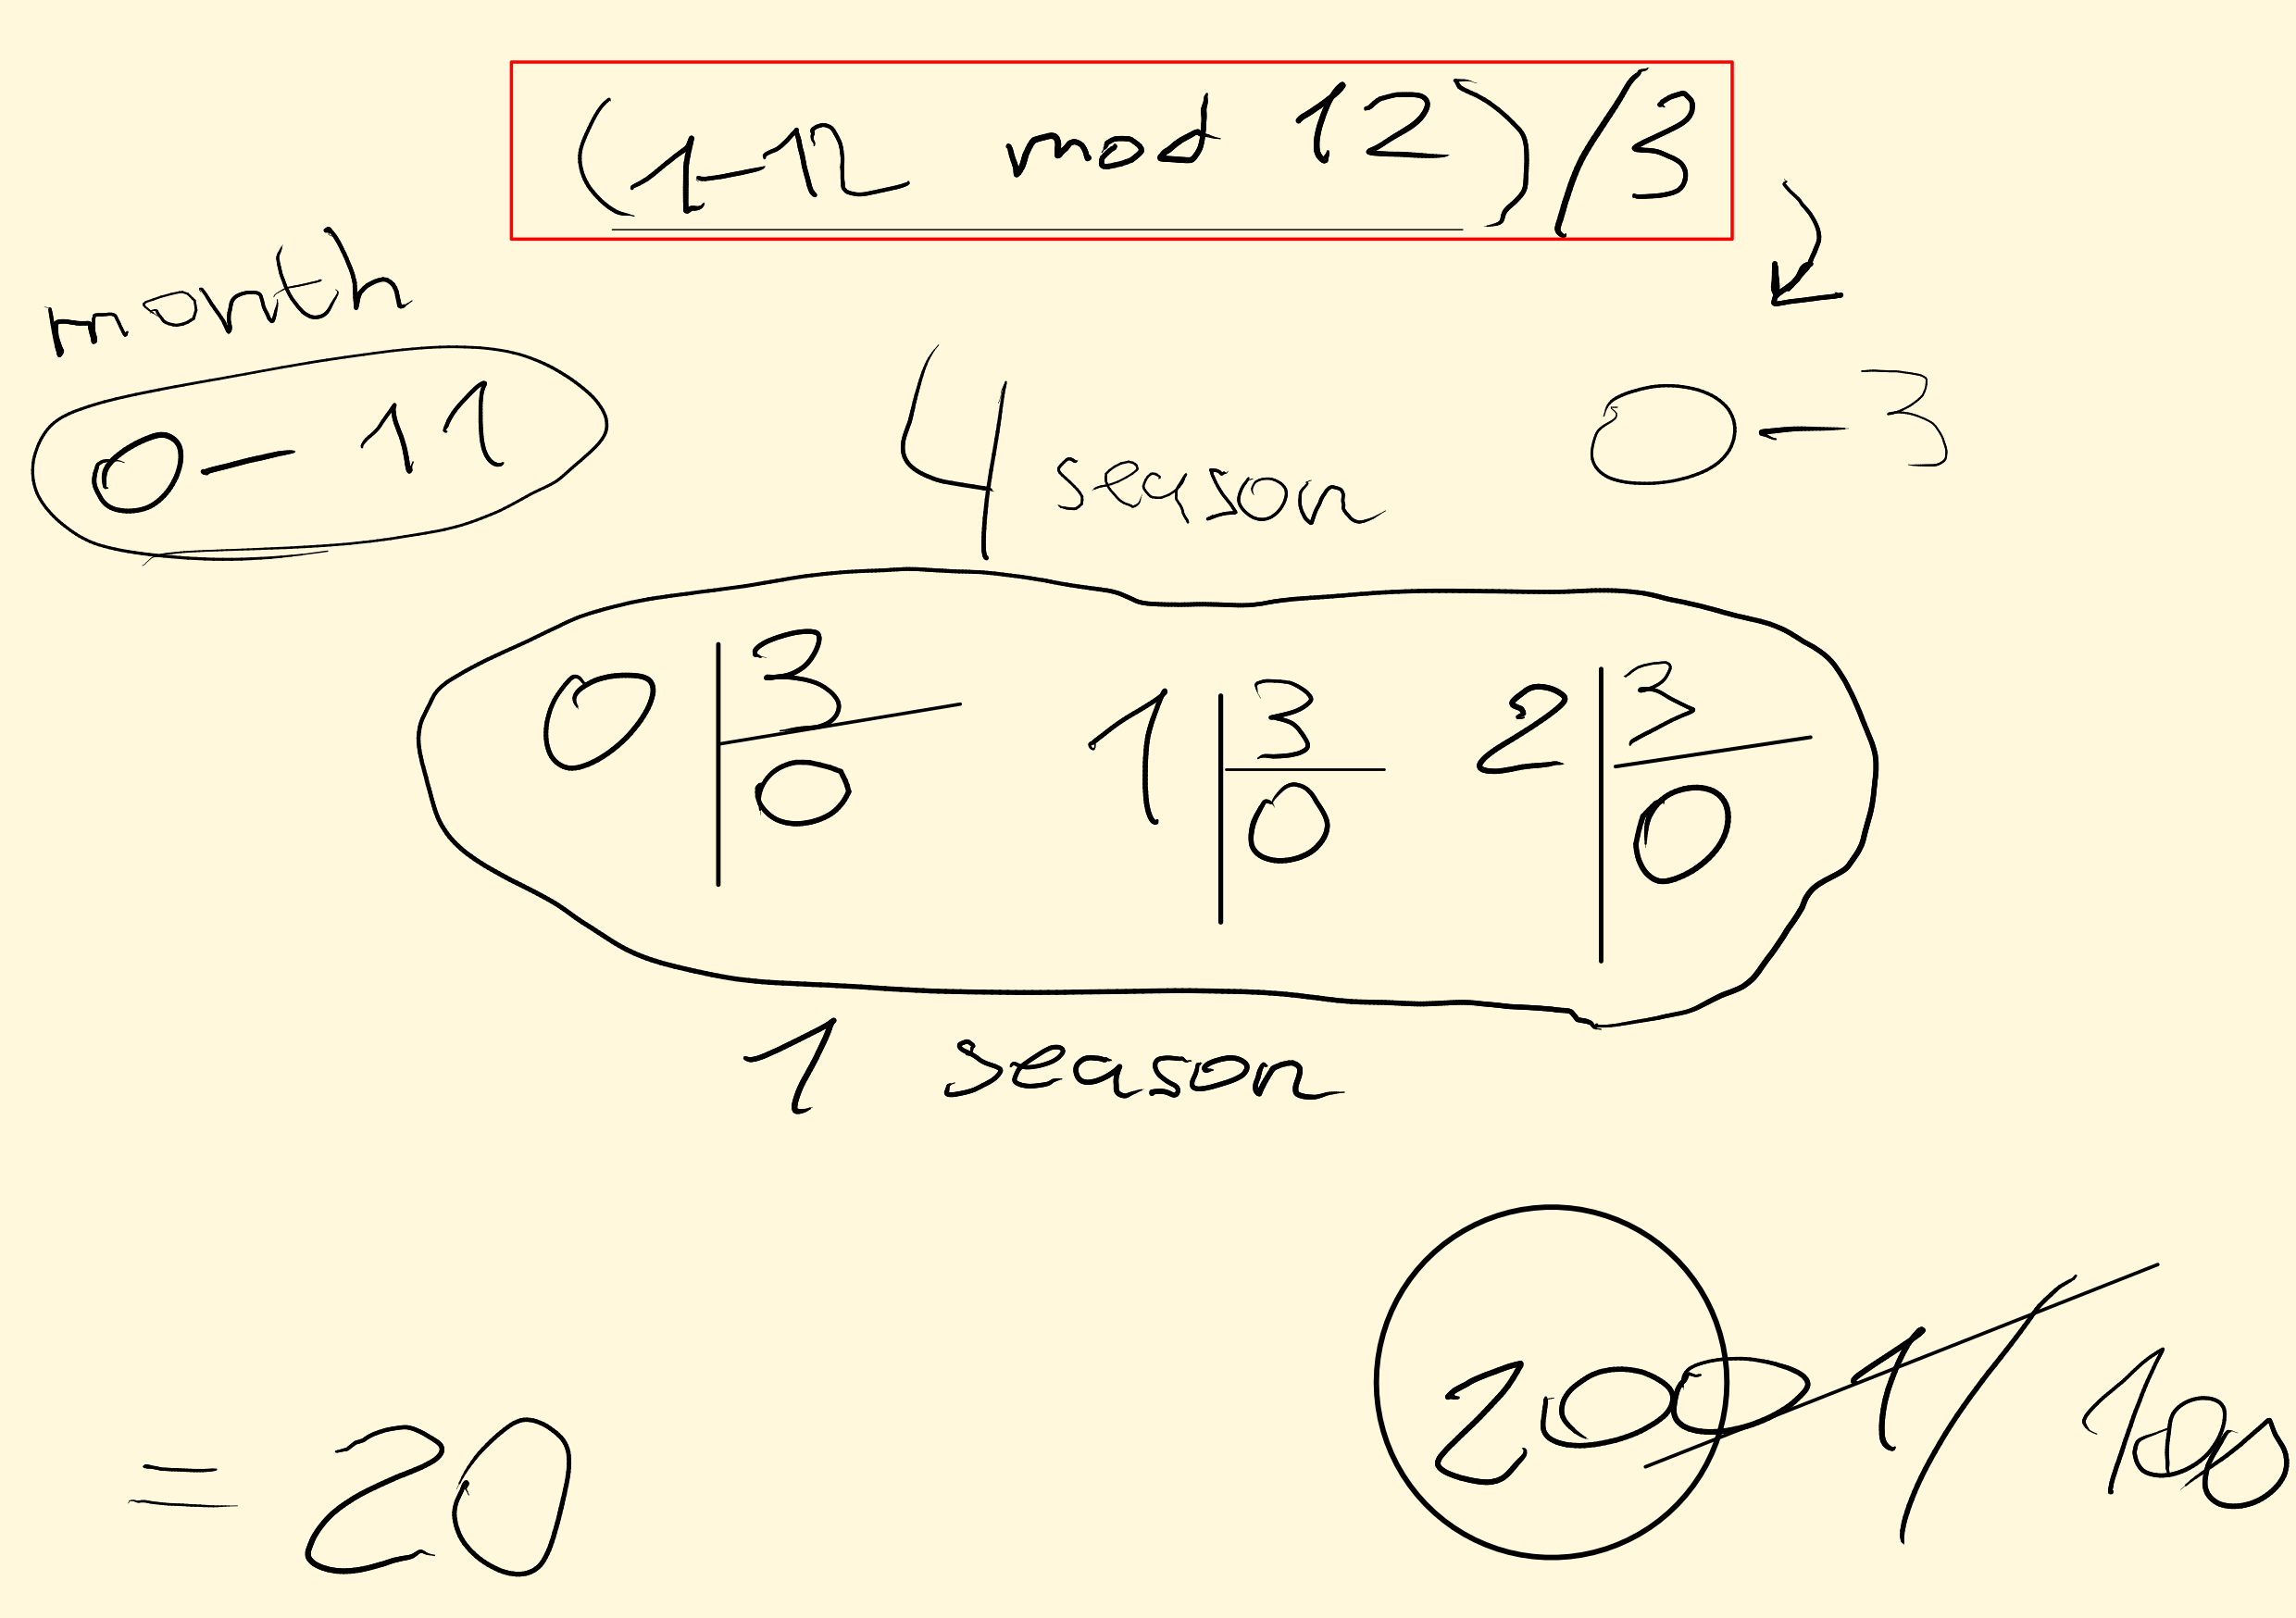 (1-12 mod 12)/3
month
0-11
4 season
0-3
0 3 0
1 3 0
2 3 0
1 season
= 20